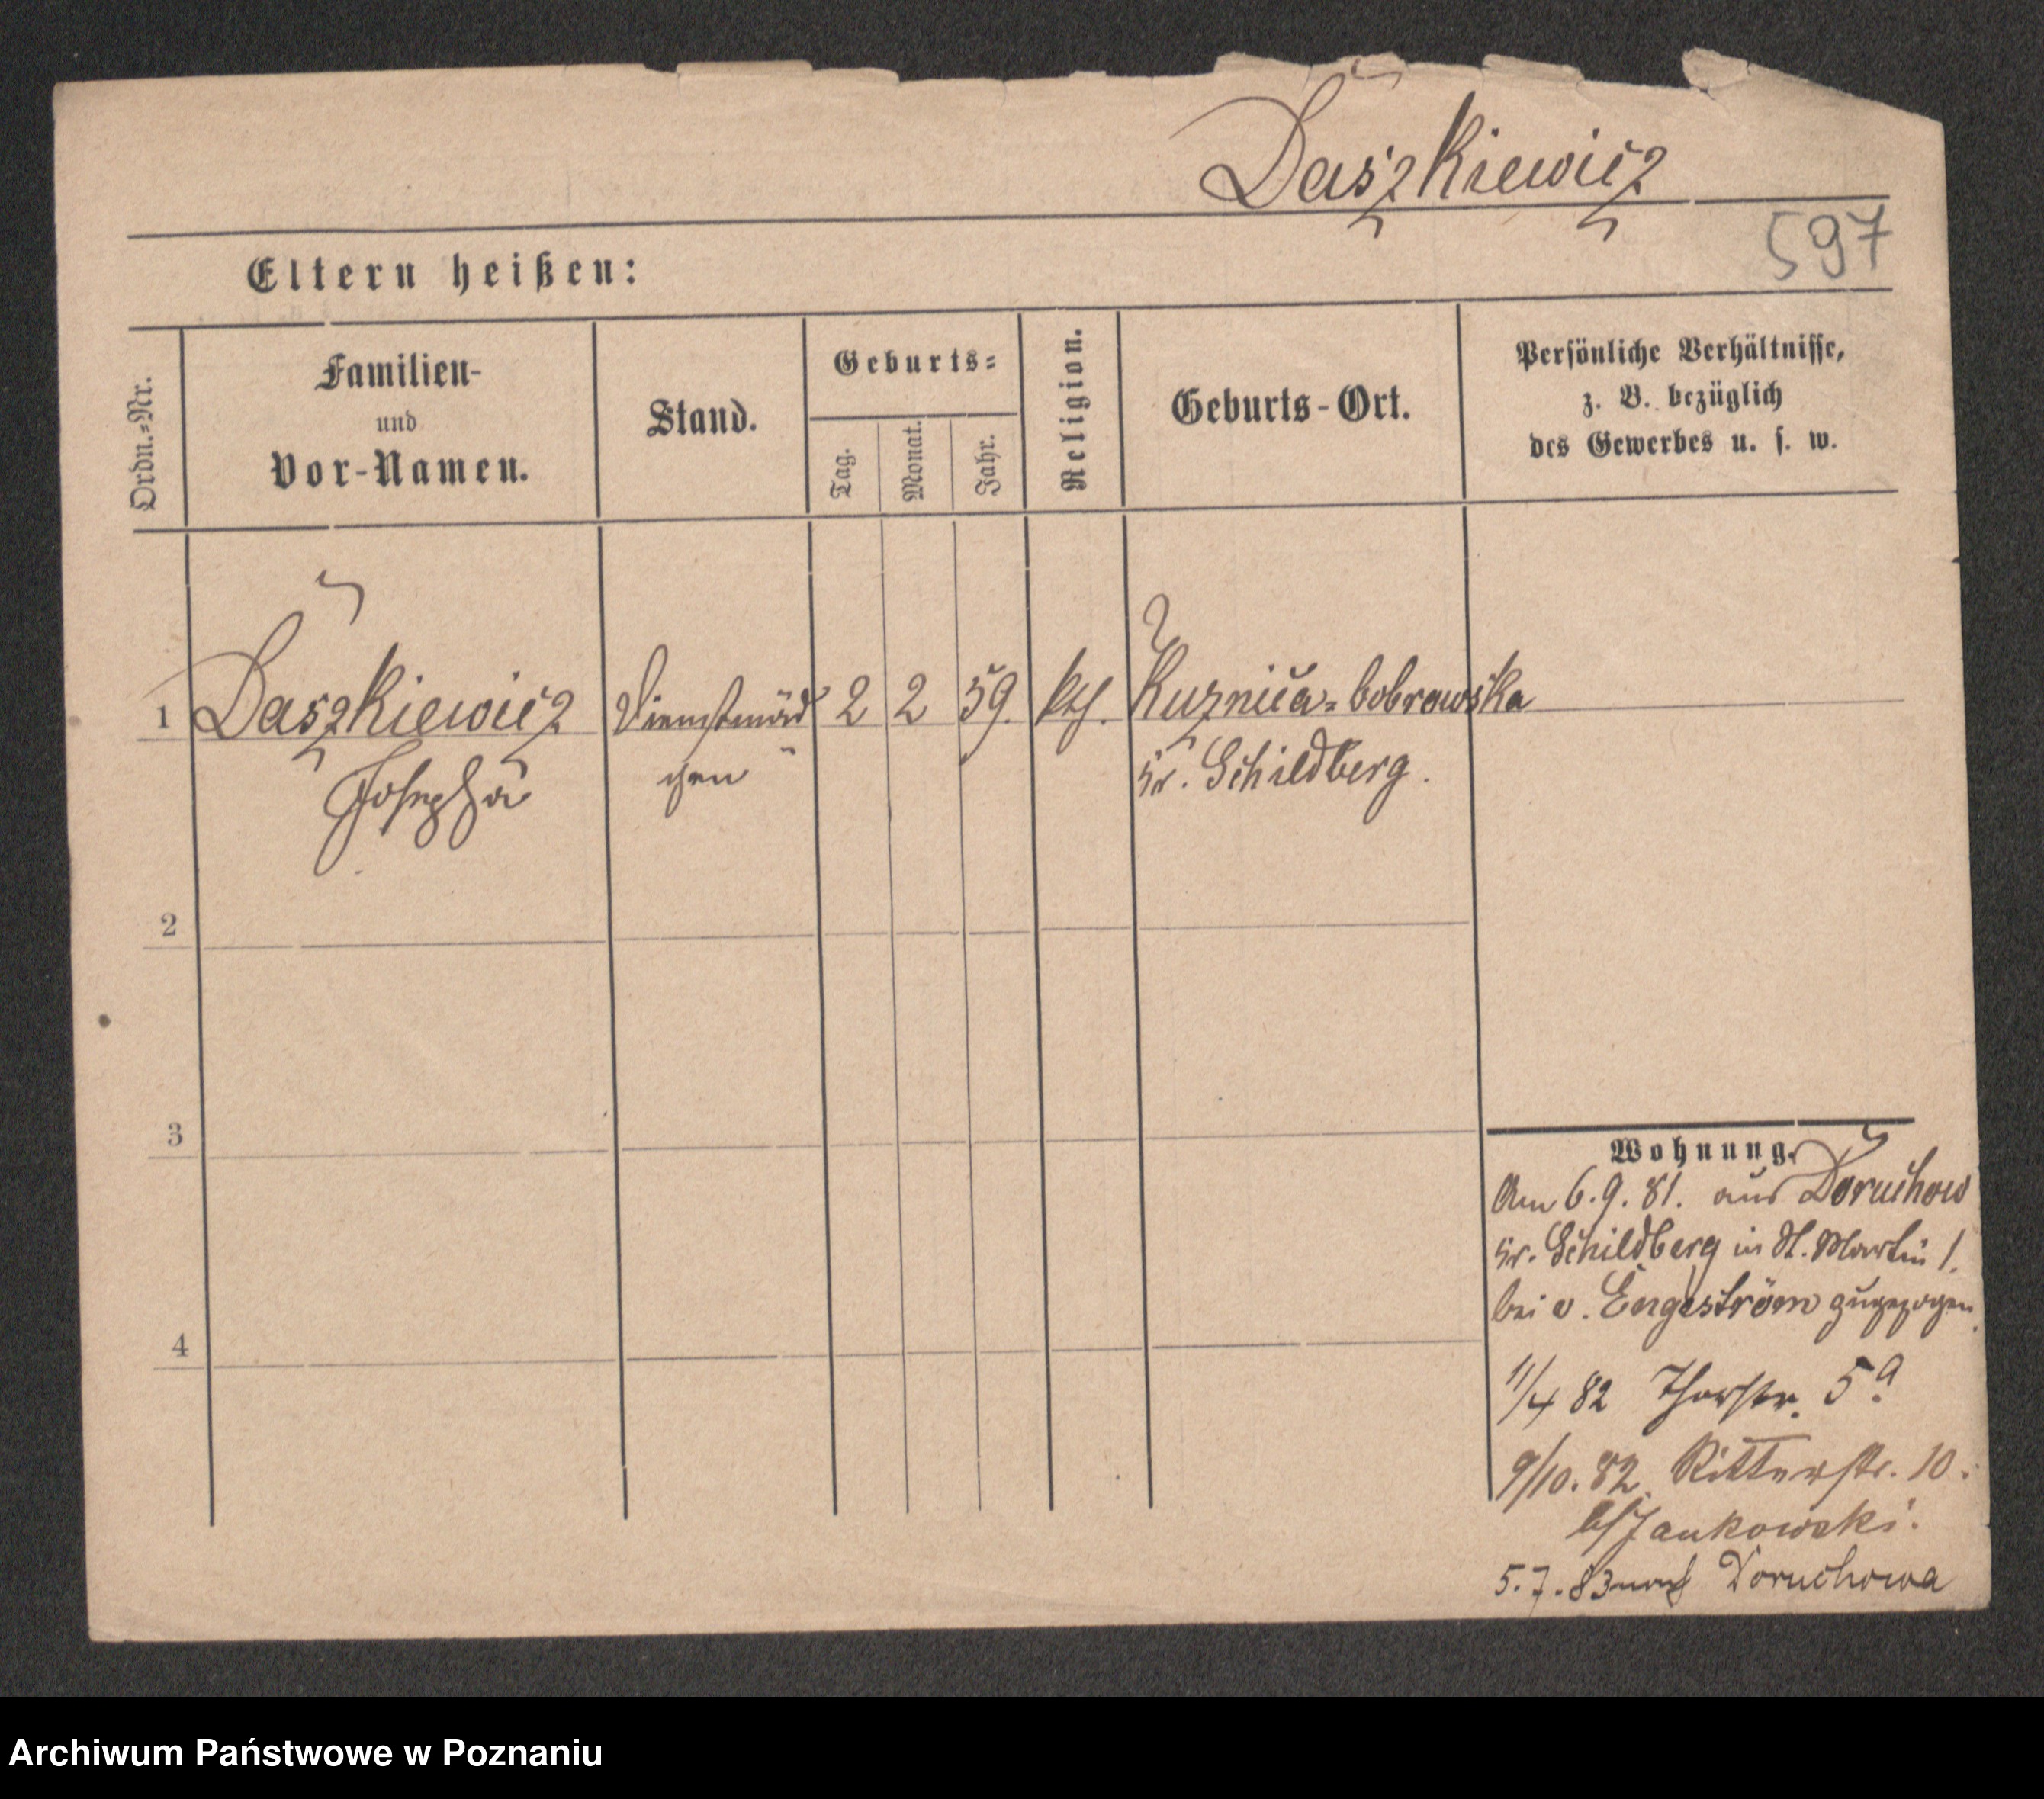 Daszkiewicz
597
Eltern heißen:
Ordn.=Nr.
Familien-
und
Vor-Namen.
Stand.
Geburts=
Tag.
Monat.
Jahr.
Religion.
Geburts-Ort.
Persönliche Verhältnisse,
z. B. bezüglich
des Gewerbes u. s. w.
1 Daszkiewicz Dienstmäd 2 2 59. kth. Kuznica=bobrowska
Josepha chen Kr. Schildberg.
2
3
4
Wohnung.
Am 6.9.81. aus Doruchow
Kr. Schildberg in St. Martin 1.
bei v. Engeström zugezogen.
11/4 82 Thorstr. 5a
9/10.82. Ritterstr. 10.
b/Jankowski.
5.7.83 nach Doruchowa
Archiwum Państwowe w Poznaniu